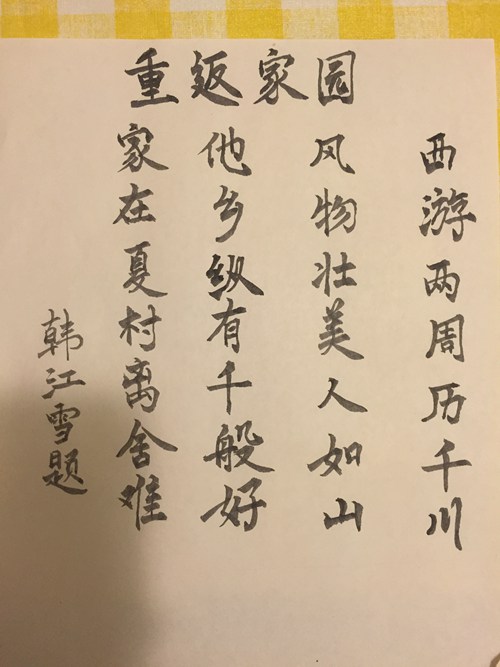 重返家园
西游两周历千川
风物壮美人如山
他乡纵有千般好
家在夏村离舍难
韩江雪题